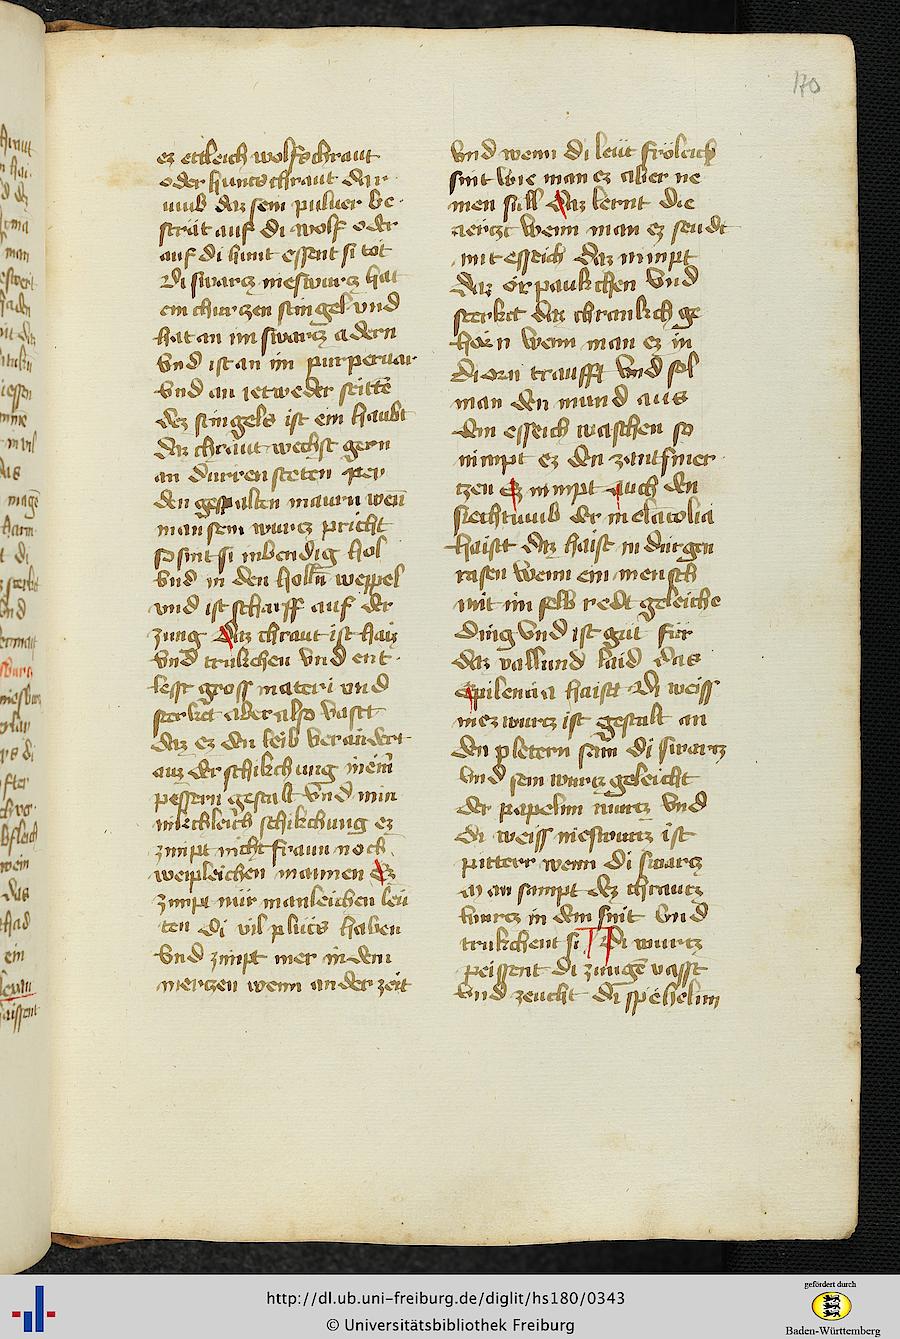 170
ez etleich wolfschraut
oder huntschraut dar
umb daz sein puluer be
strät auf di wolf oder
auf di hunt essent si tot
Di swartz nieswurtz hat
ein churczen stingel vnd
hat an im swartz adern
vnd ist an im purperuar
vnd an ietweder seitte
dez stingels ist ein haubt
daz chraut wechst gern
an dürren steten pey
den gespalten maurn wen̄
man sein wurtz pricht
so sint si inbendig hol
vnd in den holn̄ weppel
vnd ist scharff auf der
zung Daz chraut ist haiz
vnd trukchen vnd ent
lesst gross materi vnd
sterket aber also vastt
daz ez den leib verandert
auz der schikchung in ein̄
pessern gestalt vnd min
schikchung ez
zimpt nicht fraun noch
weipleichen mannen Ez
zimpt nür manleichen leü
ten di vil plücs haben
vnd zimpt mer in dem
mertzen wenn an der zeit
vnd wenn di leüt frôleich
sint wie man ez aber ne
men süll daz lernt die
aerczt wenn man ez seudt
mit esseich daz nimpt
daz ôrpaukchen vnd
sterket daz chrankch ge
hôrn wenn man ez in
di orn traufft vnd sol
man den mund aus
dem esseich waschen so
nimpt ez den zantsmer
tzen Ez nimpt auch den
siechtumb der melacolia
haisst daz haist in dürgen
rasen wenn ein mensch
mit im selb redt geleiche
ding vnd ist güt für
daz vallund laid das
epilencia haisst Di weiss
niezwurtz ist gestalt an
den pletern sam di swartz
vnd sein wurtz geleicht
der papelnn wurtz vnd
di weiss nieswurtz ist
pitterr wenn di swartz
Man sampt dez chrautz
wurtz in dem snit vnd
trukchent si Di wurtz
peissent di zungē vasst
vnd zeucht di spêhelnn
http://dl.ub.uni-freiburg.de/diglit/hs180/0343
© Universitätsbibliothek Freiburg
gefördert durch
Baden-Württemberg